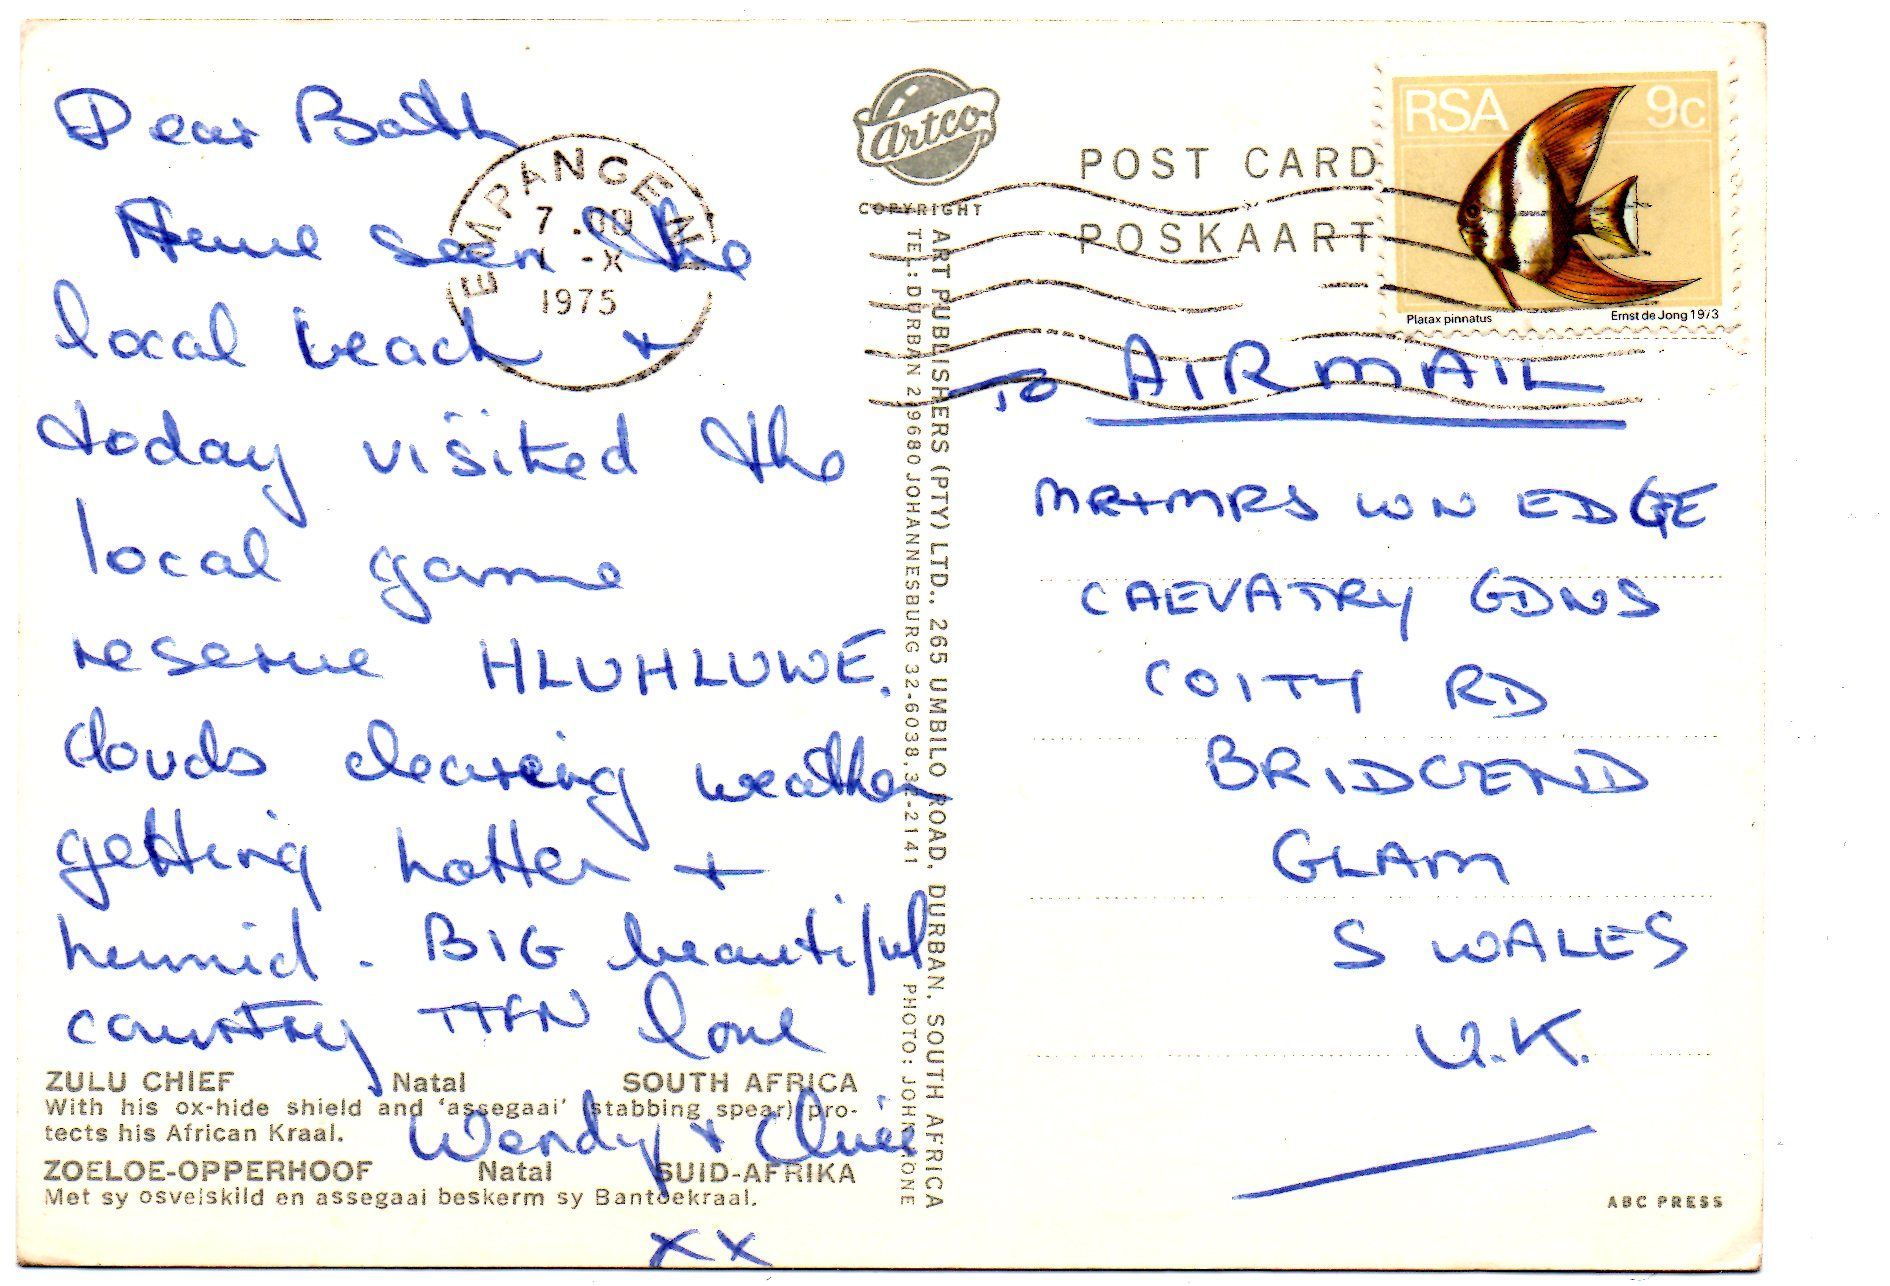 Dear Both
Have seen the
local beach +
today visited the
local game
reserve HLUHLUWE.
clouds clearing weather
getting hotter +
humid. BIG beautiful
country TTFN love
Wendy +
xx
ZULU CHIEF Natal SOUTH AFRICA
With his ox-hide shield and ‘assegaai’ (stabbing spear) pro-
tects his African Kraal.
ZOELOE-OPPERHOOF Natal SUID-AFRIKA
Met sy osvelskild en assegaai beskerm sy Bantoekraal.
EMPANGENI
7.00
-X
1975
Artco
COPYRIGHT
ART PUBLISHERS (PTY) LTD., 265 UMBILO ROAD, DURBAN, SOUTH AFRICA
TEL: DURBAN 2 9680 JOHANNESBURG 32-6038, 32-2141 PHOTO: JOHN HONE
POST CARD
POSKAART
RSA 9c
Platax pinnatus Ernst de Jong 1973
TO AIRMAIL
MR+MRS WN EDGE
CAEVATRY GDNS
COITY RD
BRIDGEND
GLAM
S WALES
U.K.
ABC PRESS